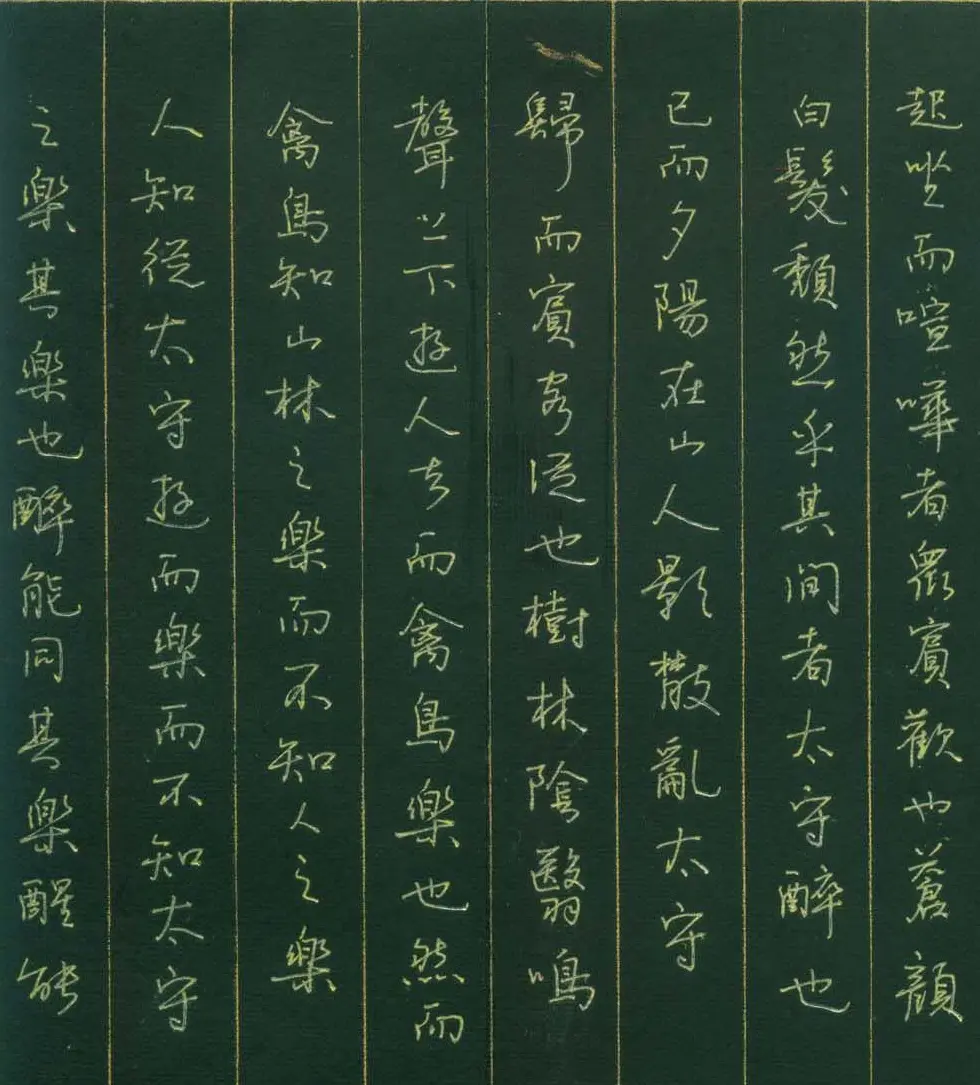 起坐而喧嘩者眾賓歡也蒼顏
白髮頹然乎其間者太守醉也
已而夕陽在山人影散亂太守
歸而賓客從也樹林陰翳鳴
聲上下遊人去而禽鳥樂也然而
禽鳥知山林之樂而不知人之樂
人知從太守遊而樂而不知太守
之樂其樂也醉能同其樂醒能